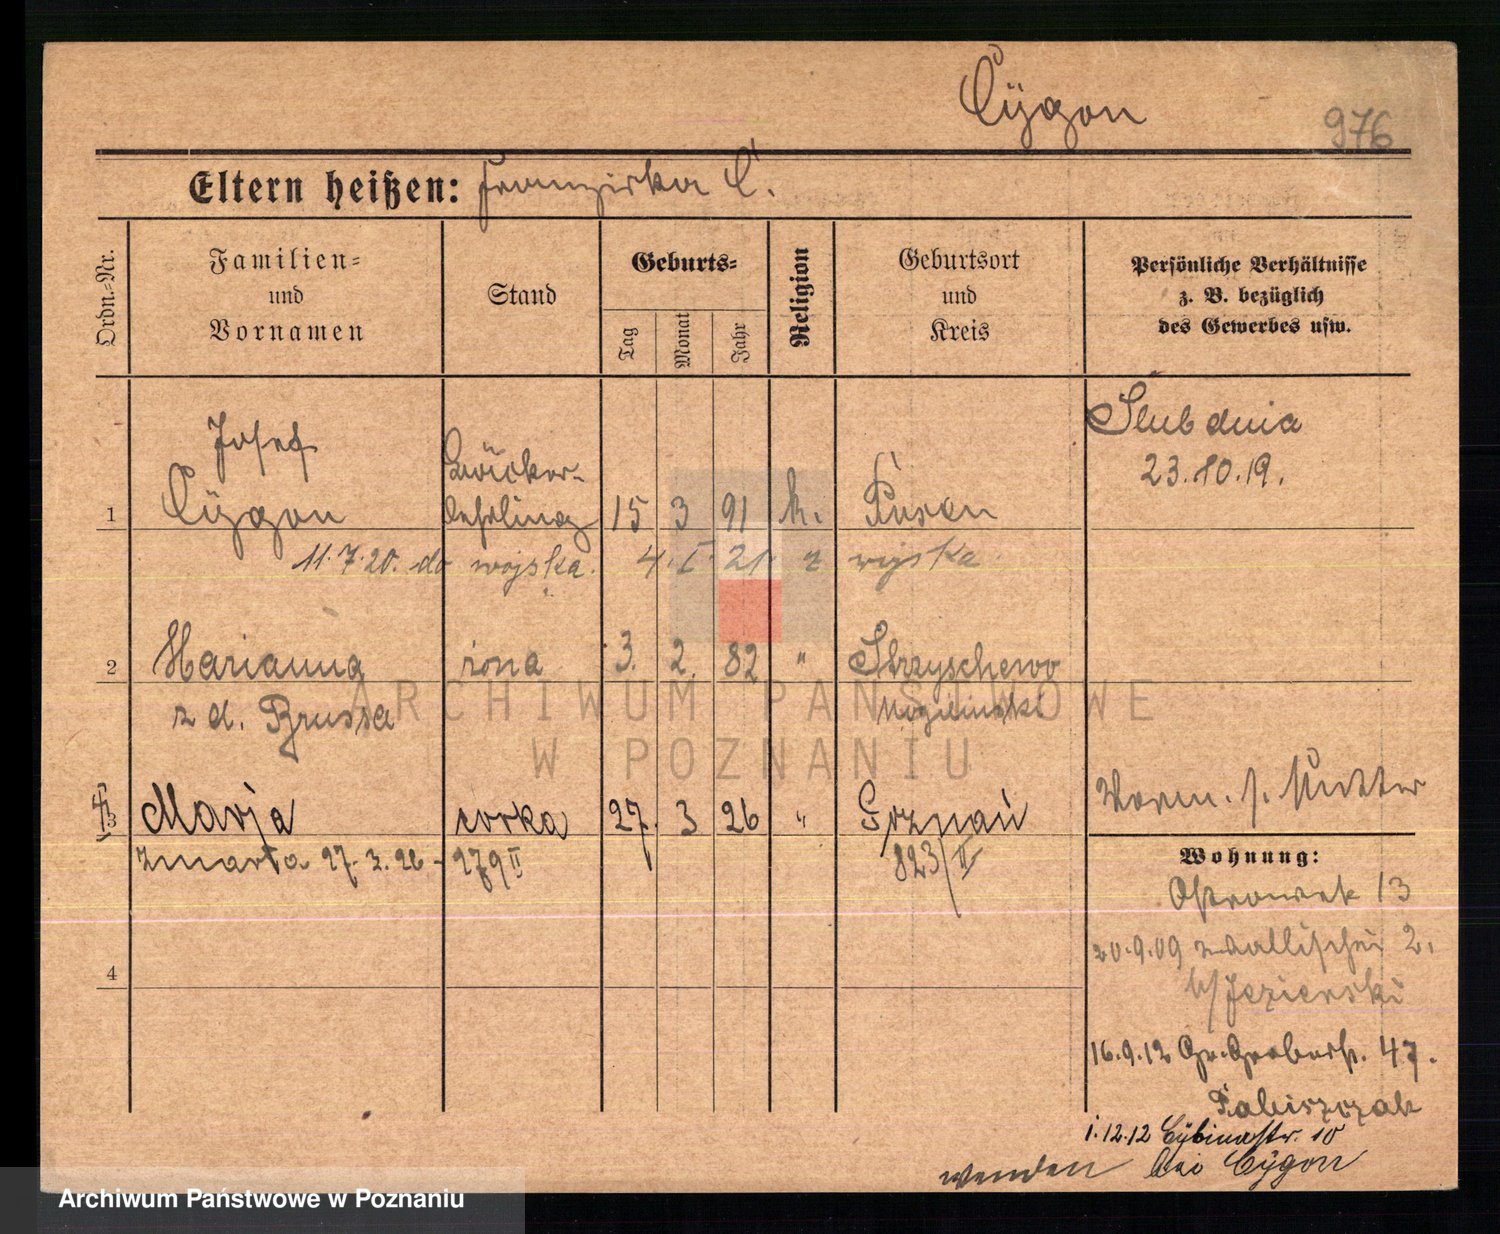 Cÿgon
976
Eltern heißen: Franziska C.
Ordn.-Nr.
Familien- und Vornamen
Stand
Geburts-
Tag
Monat
Jahr
Religion
Geburtsort und Kreis
Persönliche Verhältnisse z. B. bezüglich des Gewerbes usw.
Ślub dnia
23.10.19.
Josef
Bäcker-
1 Cÿgon lehrling 15 3 91 k. Posen
11.7.20. do wojska. 4. I. 21. z wojska
2 Marianna żona 3. 2. 82 " Strzyschewo
z d. Brussa
Vorm. s. Mutter
3 Marja córka 27. 3 26 " Poznań
zmarła 27.3.26 - 279 II 823/II
Wohnung:
Ostrowek 13
20.9.09 Wallischei 2.
b/Jezierski
4
16.9.12 Gr. Gerberstr. 47.
Fabiszczak
1.12.12 Cybinastr. 10
wenden bei Cÿgon
ARCHIWUM PAŃSTWOWE
W POZNANIU
Archiwum Państwowe w Poznaniu